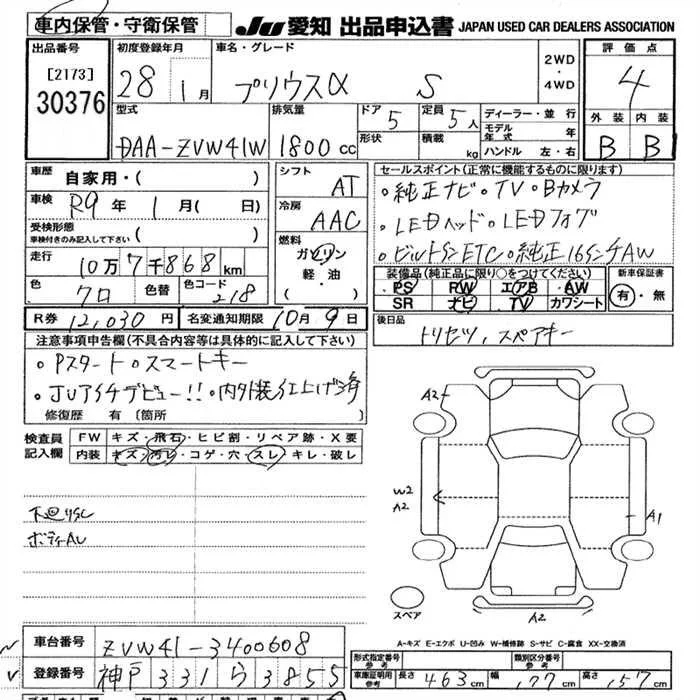 車内保管・守衛保管
JU 愛知 出品申込書 JAPAN USED CAR DEALERS ASSOCIATION
出品番号 初度登録年月 車名・グレード 2WD・4WD 評価点
[2173]
30376
28 1月 プリウスα S 4
型式 排気量 ドア 5 定員 5人 ディーラー・並行 外装 内装
形状 積載 kg モデル年式 年
ハンドル 左・右
DAA-ZVW41W 1800cc B B
車歴 自家用・( ) シフト AT
車検 R9年 1月( 日) 冷房 AAC
受検形態
車検付きのみ記入して下さい ( ) 燃料 ガソリン
軽・油
( )
走行 10万7千868km
色 クロ 色替 色コード 218
R券 12,030円 名変通知期限 10月9日
セールスポイント(正常に機能するものに限ります)
・純正ナビ・TV・Bカメラ
・LEDヘッド・LEDフォグ
・ビルトインETC・純正16インチAW
装備品(純正品に限り○をつけてください) 新車保証書
PS PW エアB AW 有・無
SR ナビ TV カワシート
後日品
トリセツ、スペアキー
注意事項申告欄(不具合内容等は具体的に記入して下さい)
・Pスタート・スマートキー
・JUアイチデビュー!!・内外装仕上げ済
修復歴 有 〔箇所 〕
検査員記入欄 FW キズ・飛石・ヒビ割・リペア跡・X要
内装 キズ・汚レ・コゲ・穴・スレ・キレ・破レ
下廻りSC
ボディAU
A2
A2
W2
A2
A1
スペア
A2
A-キズ E-エクボ U-凹み W-補修跡 S-サビ C-腐食 XX-交換済
車台番号 ZVW41-3400608
登録番号 神戸 331 ら 3855
形式指定番号 参考 類別区分番号 参考
車庫証明用 参考 長さ 463cm 幅 177cm 高さ 157cm